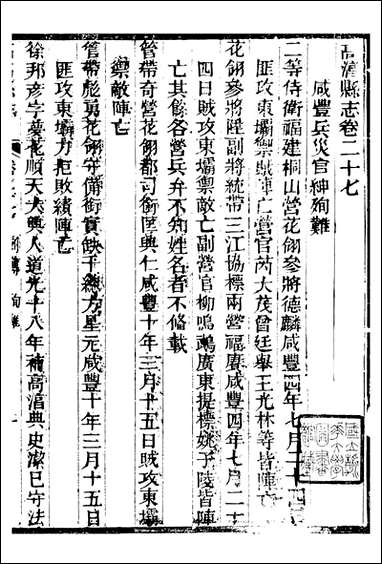 高淳縣志卷二十七
咸豐兵災官紳殉難
二等侍衛福建桐山營花翎參將德麟咸豐四年七月二十四日
匪攻東壩禦賊陣亡營官芮大茂曾廷舉王光林等皆陣亡
花翎參將陞副將統帶三江協標兩營福麐咸豐四年七月二十
四日賊攻東壩禦敵亡副營官柳鳴鸿廣東提標姚子陵皆陣
亡其餘各營兵弁不知姓名者不備載
管帶奇營花翎都司銜匡興仁咸豐十年三月十五日賊攻東壩
禦敵陣亡
管帶彪勇花翎守備銜實缺千總方星元咸豐十年三月十五日
匪攻東壩力拒敗績陣亡
徐邦彥字夢花順天大興人道光十八年補高淳典史潔己守法